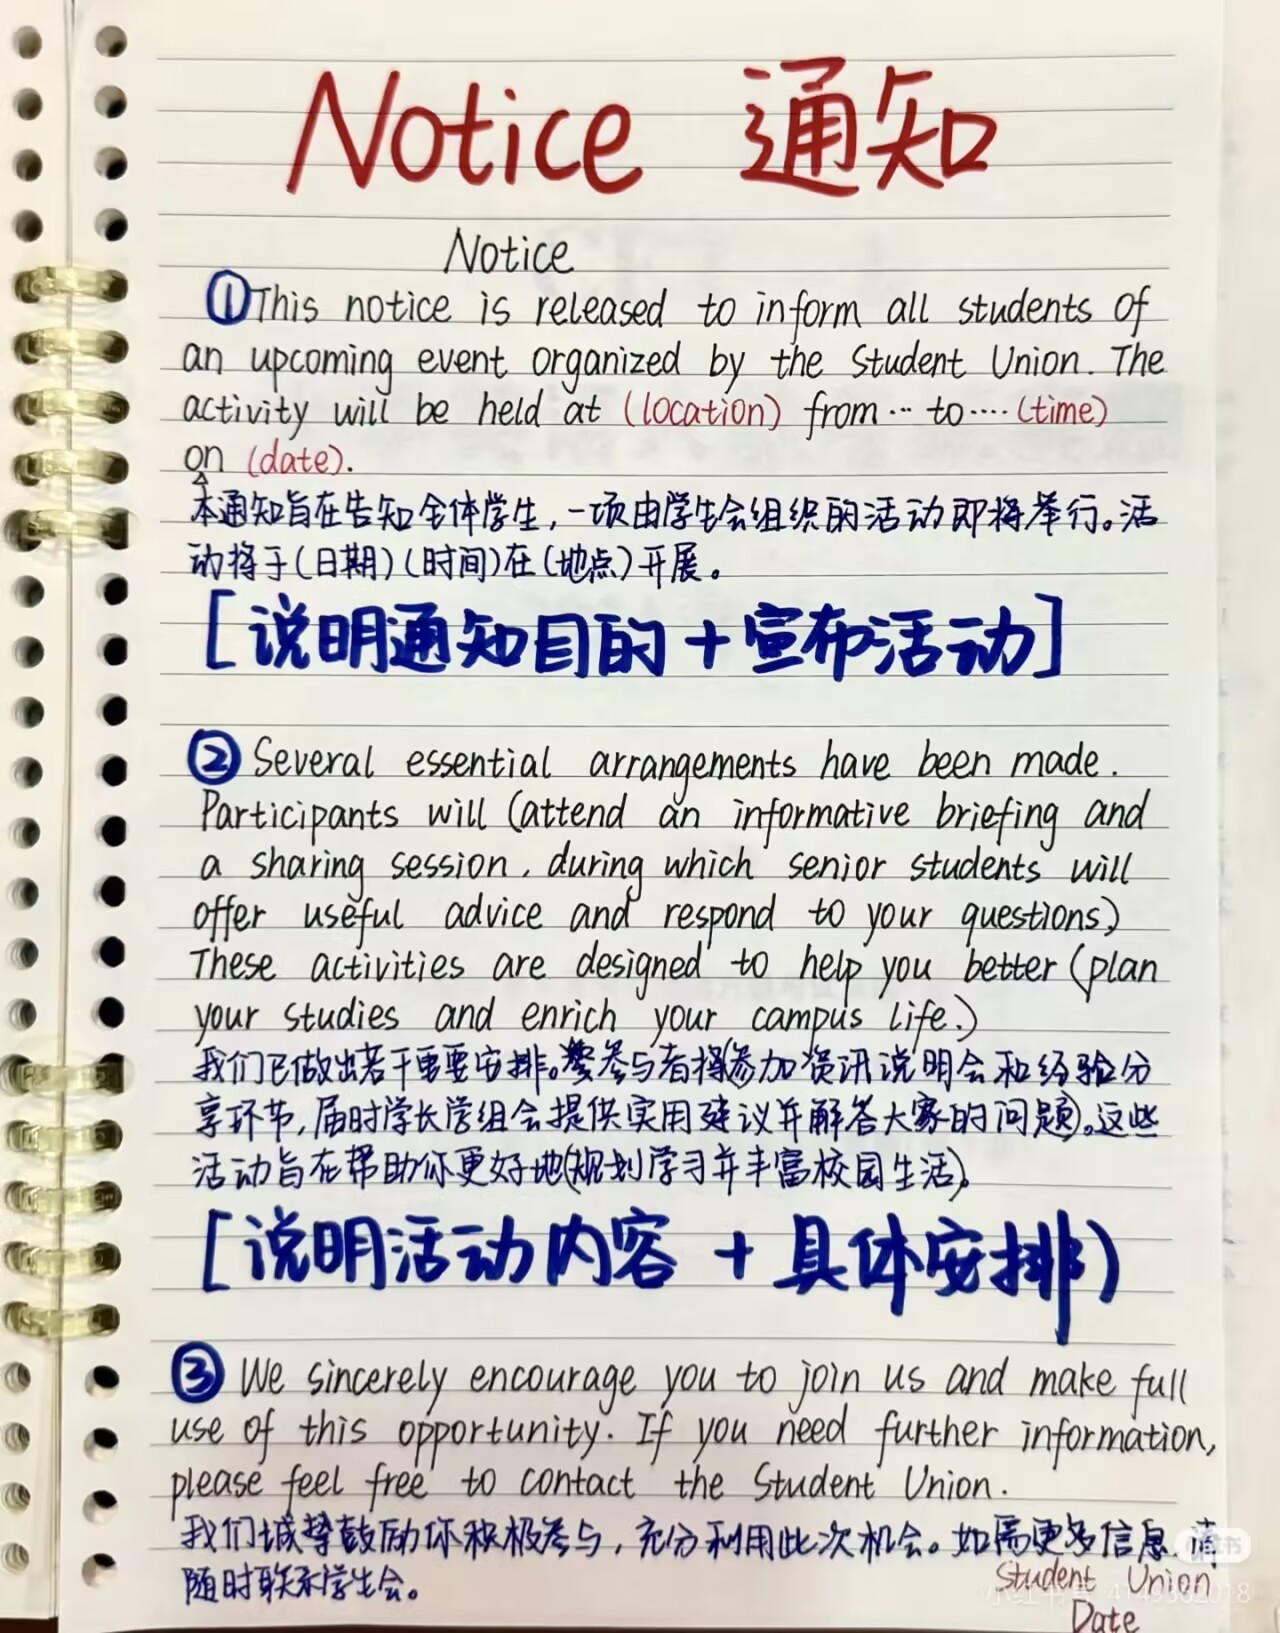 Notice 通知
Notice
①This notice is released to inform all students of
an upcoming event organized by the Student Union. The
activity will be held at (location) from ... to .... (time)
on (date).
本通知旨在告知全体学生,一项由学生会组织的活动即将举行。活
动将于(日期)(时间)在(地点)开展。
[说明通知目的+宣布活动]
②Several essential arrangements have been made.
Participants will (attend an informative briefing and
a sharing session, during which senior students will
offer useful advice and respond to your questions)
These activities are designed to help you better (plan
your studies and enrich your campus life.)
我们已做出若干重要安排。参与者将(参加资讯说明会和经验分
享环节,届时学长学组会提供实用建议并解答大家的问题)。这些
活动旨在帮助你更好地(规划学习并丰富校园生活)。
[说明活动内容 + 具体安排)
③We sincerely encourage you to join us and make full
use of this opportunity. If you need further information,
please feel free to contact the Student Union.
我们诚挚鼓励你积极参与,充分利用此次机会。如需更多信息,请
随时联系学生会。
Student Union
Date